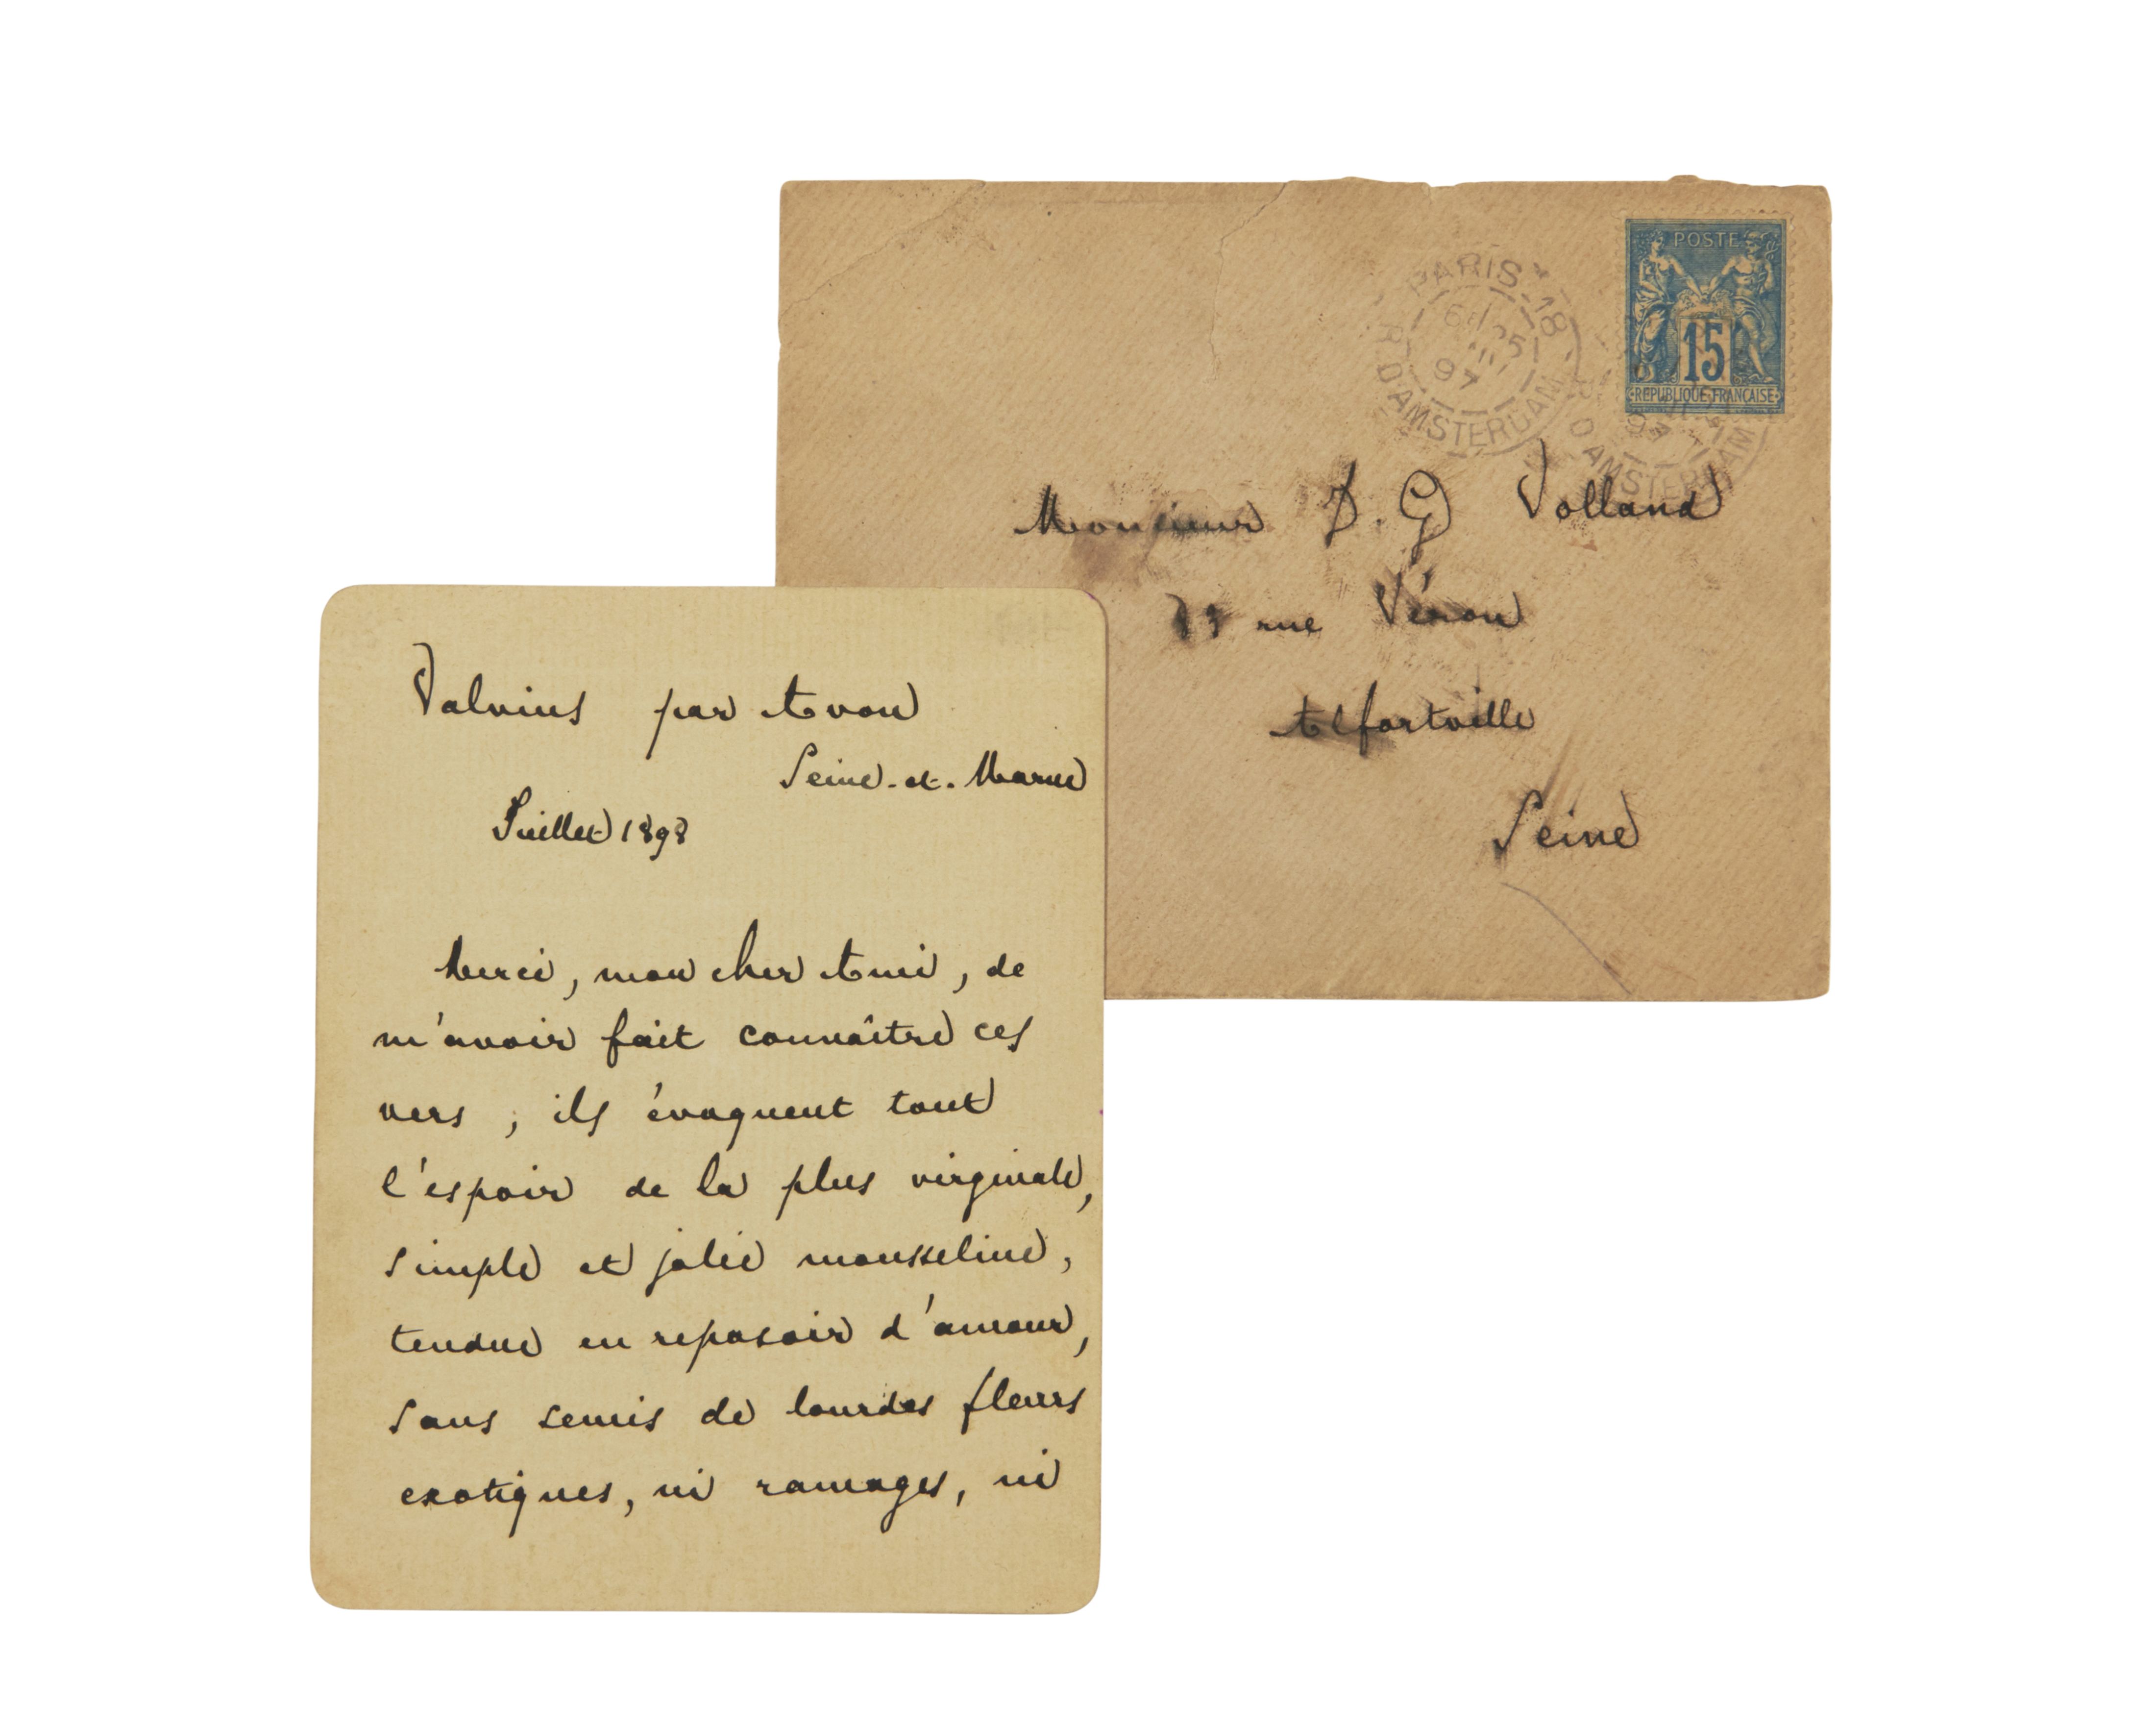 POSTE
15
REPUBLIQUE FRANÇAISE
PARIS 18
97
R. D'AMSTERDAM
D'AMSTERDAM
97
Monsieur J. G Volland
rue Véron
Alfortville
Seine
Valvins par Avon
Seine-et-Marne
Juillet 1898
Merci, mon cher Ami, de
m'avoir fait connaître ces
vers ; ils évoquent tout
l'espoir de la plus virginale,
simple et jolie mousseline,
tendue en reposoir d'amour,
sans semis de lourdes fleurs
exotiques, ni ramages, ni